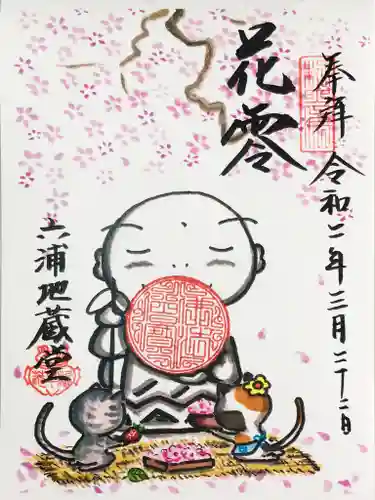 奉拝
令和二年三月二十二日
花零
六浦地蔵堂